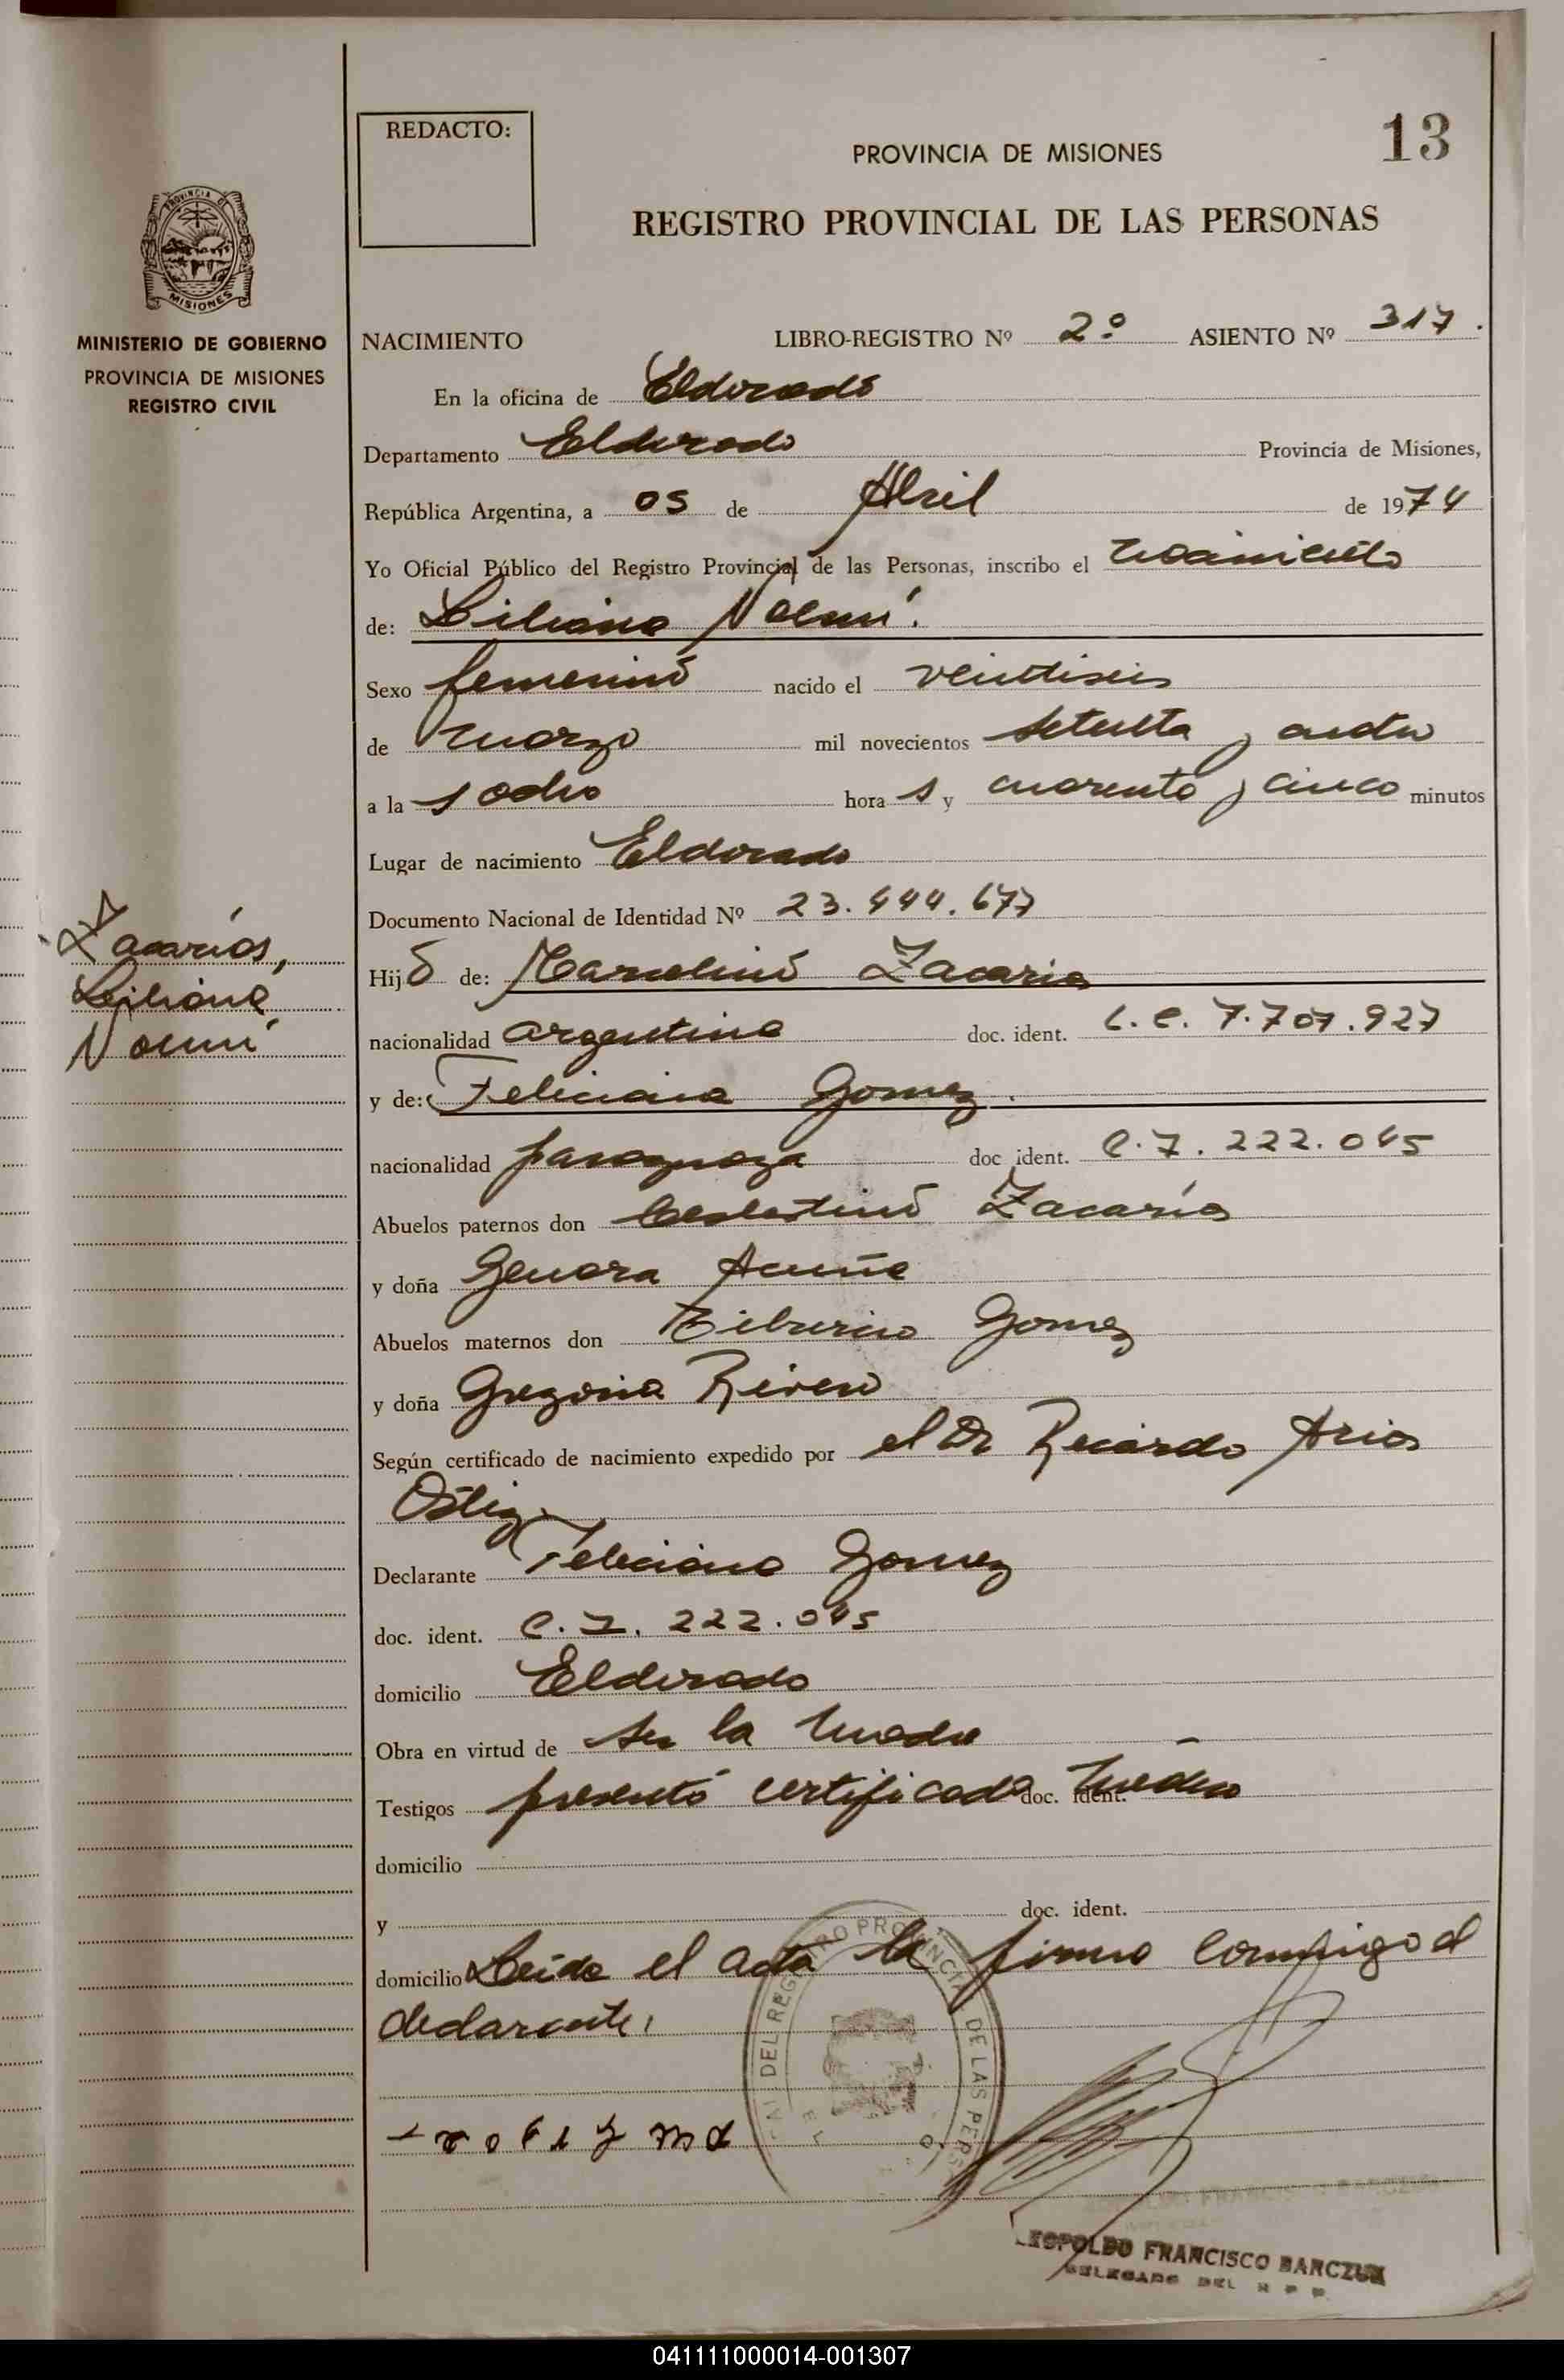 REDACTO:
13
PROVINCIA DE MISIONES
REGISTRO PROVINCIAL DE LAS PERSONAS
PROVINCIA DE
MISIONES
MINISTERIO DE GOBIERNO
PROVINCIA DE MISIONES
REGISTRO CIVIL
NACIMIENTO LIBRO-REGISTRO Nº 2º ASIENTO Nº 317.
En la oficina de Eldorado
Departamento Eldorado Provincia de Misiones,
República Argentina, a 05 de Abril de 1974
Yo Oficial Público del Registro Provincial de las Personas, inscribo el nacimiento
de: Liliana Noemí.
Sexo femenino nacido el veintiseis
de marzo mil novecientos setenta y cuatro
a la s ocho hora s y cuarenta y cinco minutos
Lugar de nacimiento Eldorado
Documento Nacional de Identidad Nº 23.444.677
Zacarías,
Liliana
Noemí
Hij a de: Marcelino Zacaria
nacionalidad argentina doc. ident. L.E. 7.707.927
y de: Feliciana Gomez.
nacionalidad paraguaya doc ident. C.I. 222.045
Abuelos paternos don Celestino Zacarías
y doña Genara Acuña
Abuelos maternos don Tiburcio Gomez
y doña Gregoria Rivero
Según certificado de nacimiento expedido por el Dr Ricardo Arias
Ortiz.
Declarante Feliciana Gomez
doc. ident. C.I. 222.045
domicilio Eldorado
Obra en virtud de ser la madre
Testigos presentó certificado doc. ident. médico
domicilio
y doc. ident.
domicilio Leida el acta la firma conmigo el
declarante,
DEL REGISTRO PROVINCIAL DE LAS PERS
LEOPOLDO FRANCISCO BARCZUK
DELEGADO DEL R P P
041111000014-001307